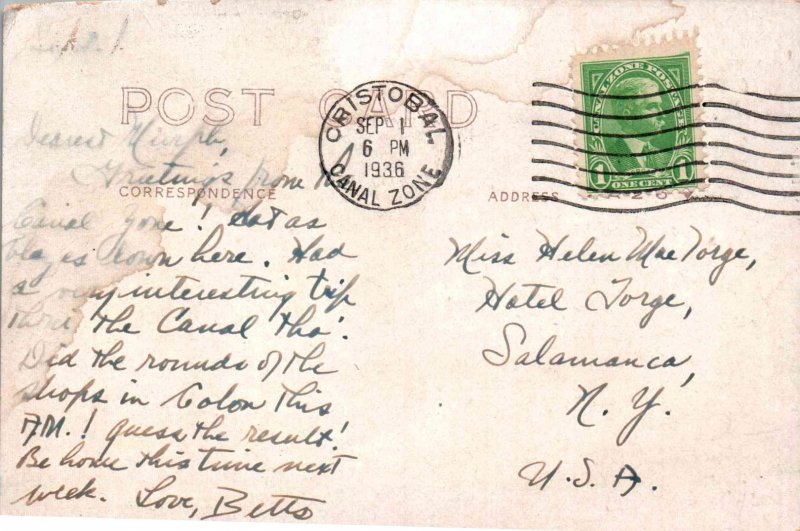 Sept. 1
POST CARD
Dearest Murph,
Greetings from the
CORRESPONDENCE
Canal Zone! Hot as
blazes down here. Had
a very interesting trip
thru the Canal tho'.
Did the rounds of the
shops in Colon this
A.M.! guess the result!
Be home this time next
week. Love, Betts
CRISTOBAL
SEP 1
6 PM
1936
CANAL ZONE
CANAL ZONE POSTAGE
1 1
ONE CENT
ADDRESS
Miss Helen Mae Torge,
Hotel Torge,
Salamanca,
N.Y.
U.S.A.